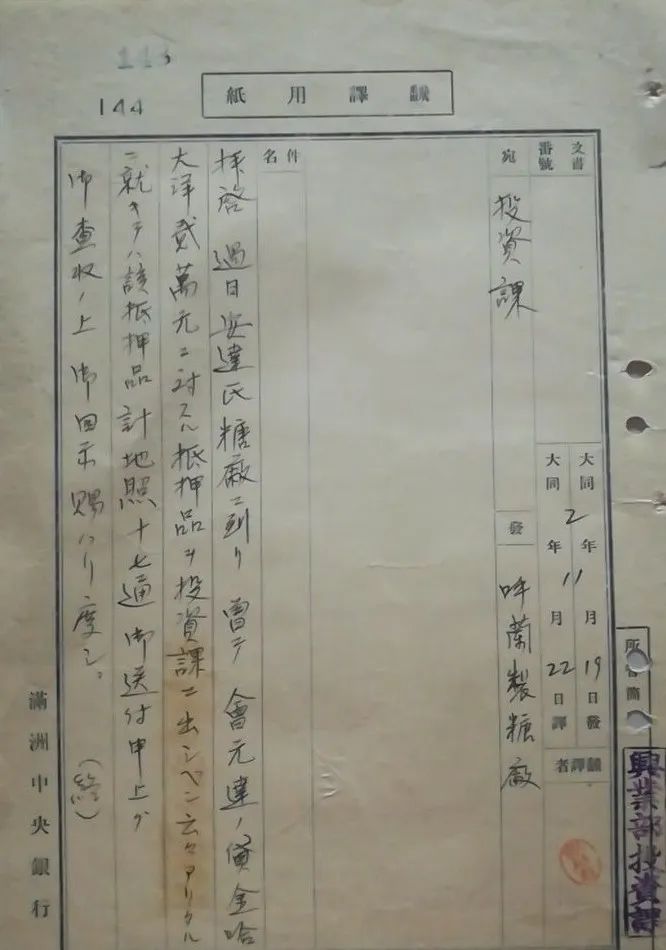 144
紙用譯飜
文書番號
大同2年11月19日發
大同 年 月22日譯
飜譯者
宛 投資課
發 呼蘭製糖廠
件名
拝啓 過日安達氏糖廠ニ到リ 曽テ 會元達ノ貸金哈
大洋貳萬元ニ対スル抵押品ヲ投資課ニ出シベシ云々アリタル
ニ就キテハ該抵押品計地照十七通御送付申上ゲ
御査収ノ上 御回示賜ハリ度シ。
(終)
滿洲中央銀行
興業部投資課